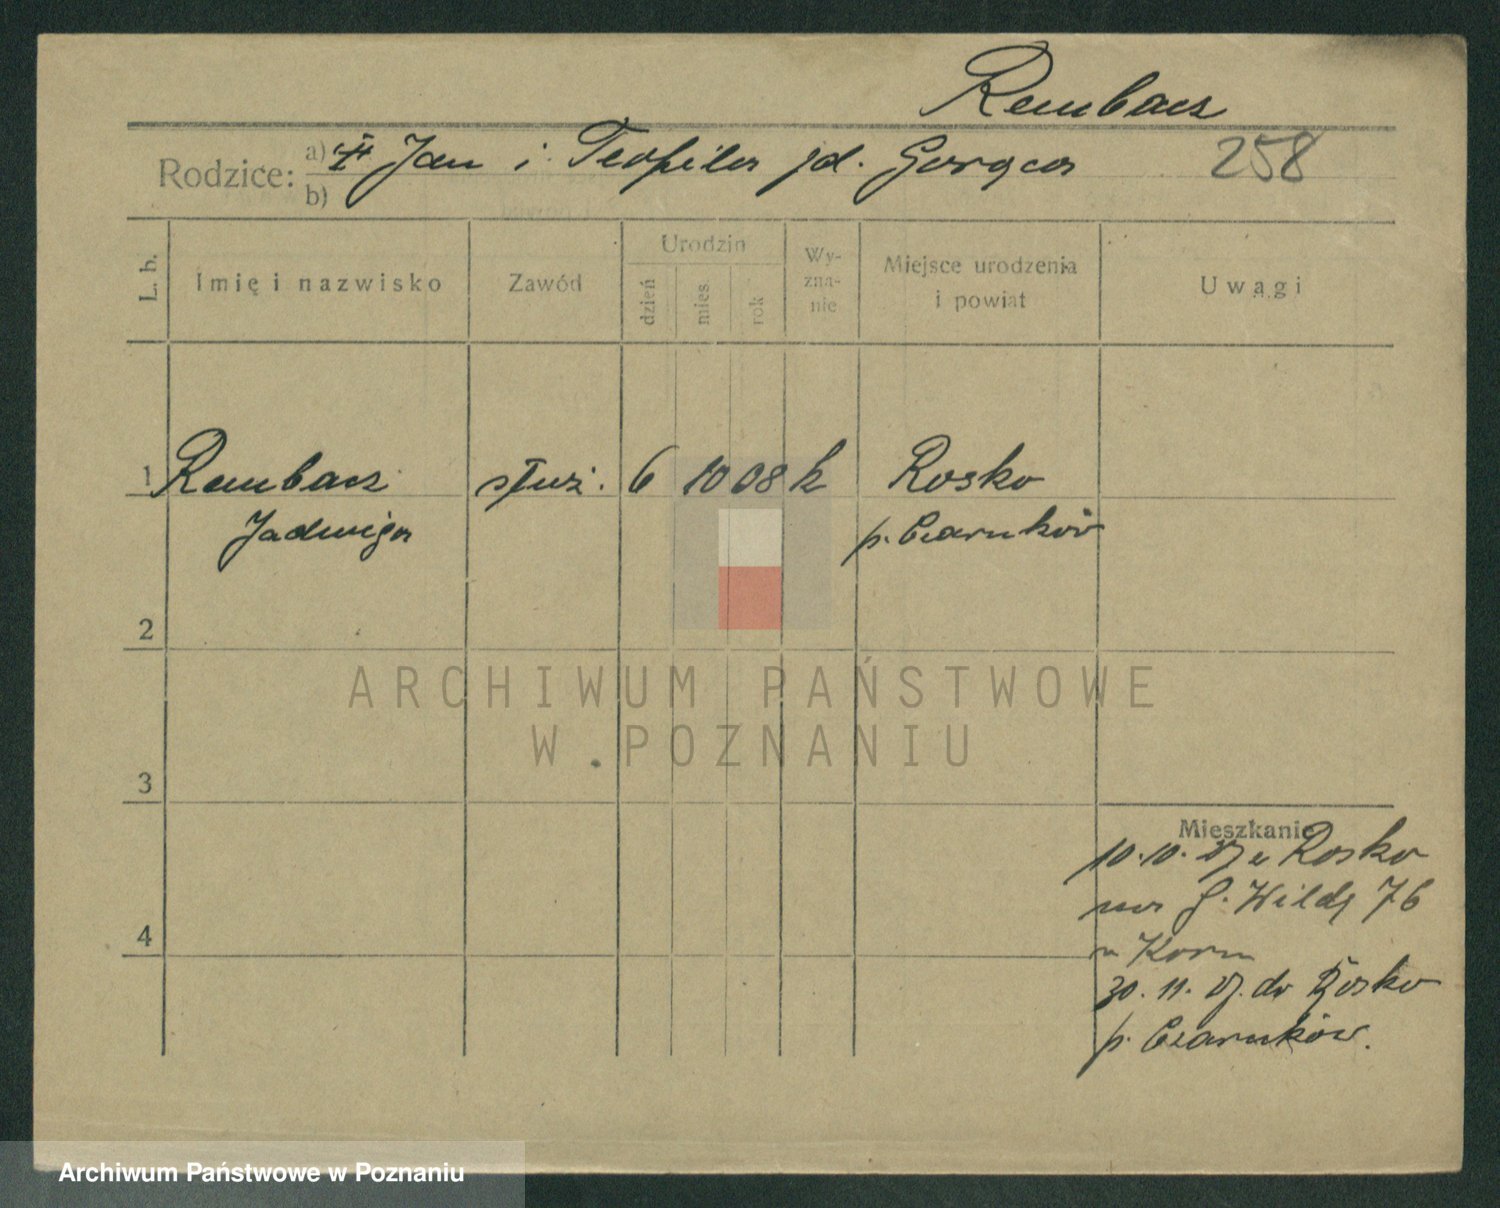 Rembacz
Rodzice: a) Jan i Teofila jd. Gorąca 258
b)
L. b. Imię i nazwisko Zawód Urodzin dzień mies. rok Wyznanie Miejsce urodzenia i powiat Uwagi
1 Rembacz służ. 6 10 08 k Rosko
Jadwiga p. Czarnków
2
ARCHIWUM PAŃSTWOWE
W POZNANIU
3
Mieszkanie
10.10. z Rosko
na G. Wildę 76
4
u Korn
30.11. do Rosko
p. Czarnków.
Archiwum Państwowe w Poznaniu